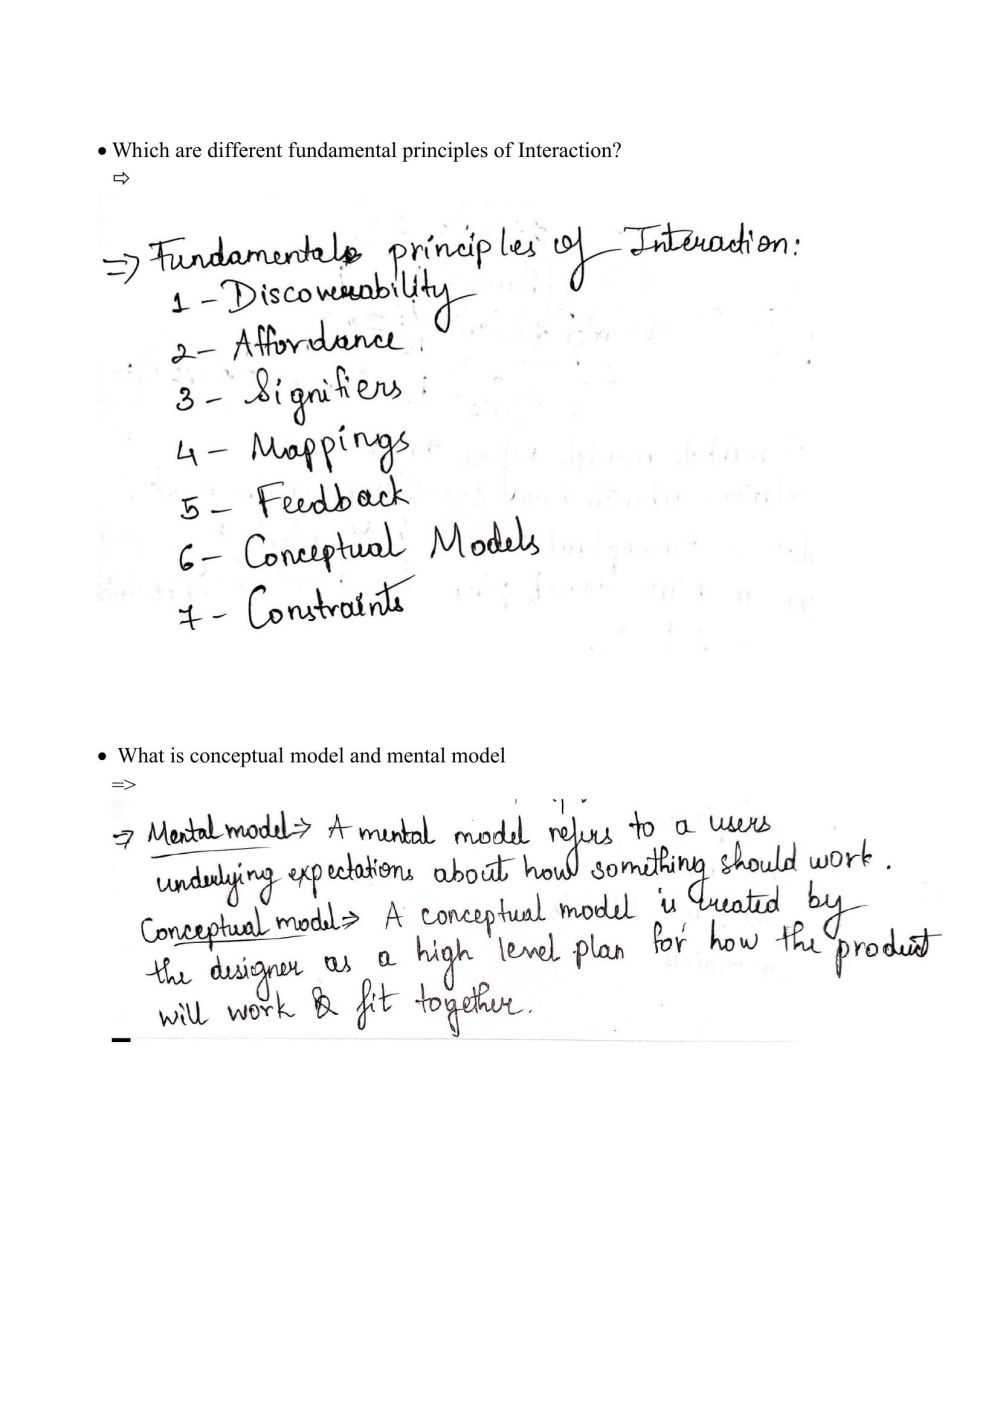 • Which are different fundamental principles of Interaction?
⇨
⇒ Fundamentals principles of Interaction:
1 - Discoverability
2 - Affordance
3 - Signifiers
4 - Mappings
5 - Feedback
6 - Conceptual Models
7 - Constraints
• What is conceptual model and mental model
=>
⇒ Mental model ⇒ A mental model refers to a users
underlying expectations about how something should work.
Conceptual model ⇒ A conceptual model is created by
the designer as a high level plan for how the product
will work & fit together.